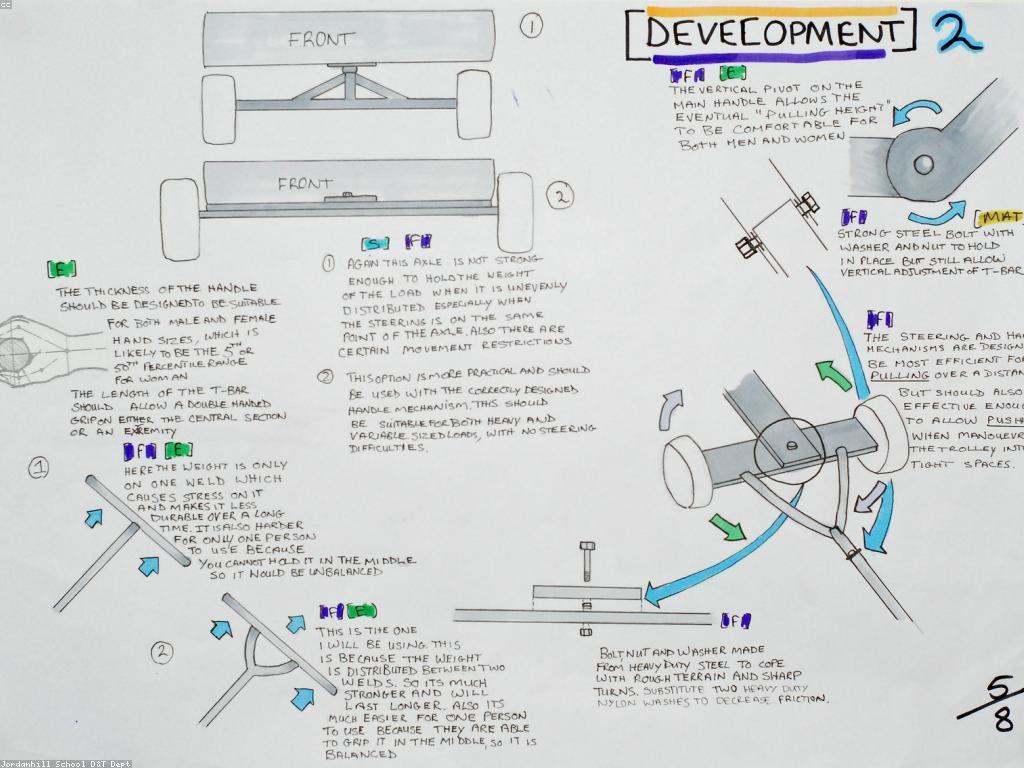 cc
[DEVELOPMENT] 2
FRONT
1
FRONT
2
[F] [E]
THE VERTICAL PIVOT ON THE
MAIN HANDLE ALLOWS THE
EVENTUAL "PULLING HEIGHT"
TO BE COMFORTABLE FOR
BOTH MEN AND WOMEN
[F] [MAT
STRONG STEEL BOLT WITH
WASHER AND NUT TO HOLD
IN PLACE BUT STILL ALLOW
VERTICAL ADJUSTMENT OF T-BAR
[E]
THE THICKNESS OF THE HANDLE
SHOULD BE DESIGNED TO BE SUITABLE
FOR BOTH MALE AND FEMALE
HAND SIZES, WHICH IS
LIKELY TO BE THE 5TH OR
50TH PERCENTILE RANGE
FOR WOMAN
THE LENGTH OF THE T-BAR
SHOULD ALLOW A DOUBLE HANDED
GRIP ON EITHER THE CENTRAL SECTION
OR AN EXREMITY
[S] [F]
1 AGAIN THIS AXLE IS NOT STRONG
ENOUGH TO HOLD THE WEIGHT
OF THE LOAD WHEN IT IS UNEVENLY
DISTRIBUTED ESPECIALLY WHEN
THE STEERING IS ON THE SAME
POINT OF THE AXLE. ALSO THERE ARE
CERTAIN MOVEMENT RESTRICTIONS
2 THIS OPTION IS MORE PRACTICAL AND SHOULD
BE USED WITH THE CORRECTLY DESIGNED
HANDLE MECHANISM. THIS SHOULD
BE SUITABLE FOR BOTH HEAVY AND
VARIABLE SIZED LOADS, WITH NO STEERING
DIFFICULTIES.
[F]
THE STEERING AND HA
MECHANISMS ARE DESIGN
BE MOST EFFICIENT FO
PULLING OVER A DISTAN
BUT SHOULD ALSO
EFFECTIVE ENOU
TO ALLOW PUSH
WHEN MANOEUVR
THE TROLLEY INTO
TIGHT SPACES.
1
[F] [E]
HERE THE WEIGHT IS ONLY
ON ONE WELD WHICH
CAUSES STRESS ON IT
AND MAKES IT LESS
DURABLE OVER A LONG
TIME. IT IS ALSO HARDER
FOR ONLY ONE PERSON
TO USE BECAUSE
YOU CANNOT HOLD IT IN THE MIDDLE
SO IT WOULD BE UNBALANCED
2
[F] [E]
THIS IS THE ONE
I WILL BE USING. THIS
IS BECAUSE THE WEIGHT
IS DISTRIBUTED BETWEEN TWO
WELDS. SO ITS MUCH
STRONGER AND WILL
LAST LONGER. ALSO ITS
MUCH EASIER FOR ONE PERSON
TO USE BECAUSE THEY ARE ABLE
TO GRIP IT IN THE MIDDLE, SO IT IS
BALANCED
[F]
BOLT, NUT AND WASHER MADE
FROM HEAVY DUTY STEEL TO COPE
WITH ROUGH TERRAIN AND SHARP
TURNS. SUBSTITUTE TWO HEAVY DUTY
NYLON WASHES TO DECREASE FRICTION.
5/8
Jordanhill School D&T Dept